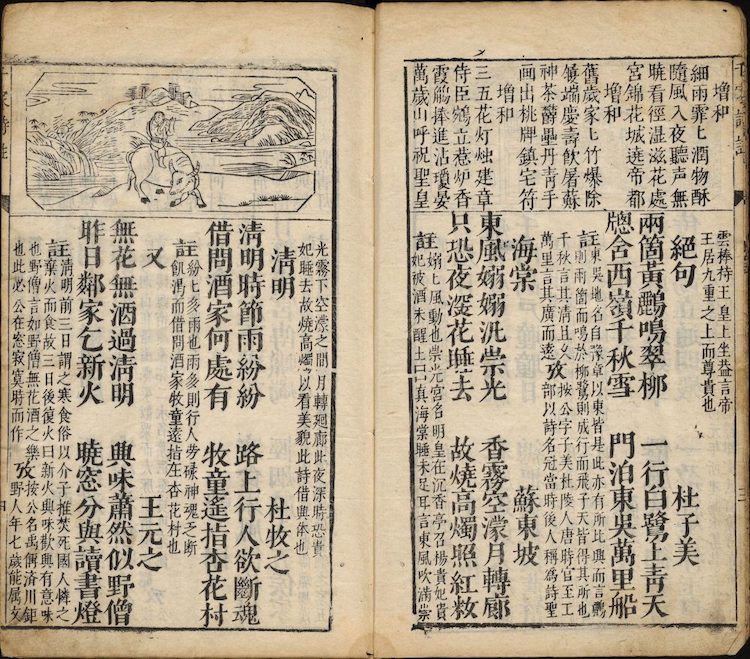 增和
細雨霏匕潤物酥
隨風入夜聽聲無
曉看徑湿滋花處
宮錦花城遶帝都
增和
舊歲家匕竹爆除
餞端慶壽飲屠蘇
神荼鬱壘丹青手
画出桃牌鎮宅符
增和
三五花灯烛建章
侍臣鵠立惹炉香
霞觴捧進沾瓊宴
萬歲山呼祝聖皇
雲棒持王皇上坐益言帝
王居九重之上而尊貴也
絕句 杜子美
兩箇黃鸝鳴翠柳 一行白鷺上靑天
牕含西嶺千秋雪 門泊東吳萬里船
註東吳地名自豫章以東皆是此亦有所比興而言鸝
則兩箇而鳴於柳鷺則成行而飛于天皆得其所也
千秋言其清且久
萬里言其廣而遠
攷按公字子美杜陵人唐時官至工
部以詩名冠當時後人稱為詩聖
海棠 蘇東坡
東風嫋嫋汎崇光 香霧空濛月轉廊
只恐夜深花睡去 故燒高燭照紅粧
註嫋匕風動也崇光宮名明皇在沉香亭召楊貴妃貴
妃被酒未醒土曰真海棠睡未足耳言東風吹滿崇
光霧下空濛之間月轉廻廊此夜深時恐貴
妃睡去故燒高燭以看美貌此詩借與体也
淸明 杜牧之
淸明時節雨紛紛 路上行人欲斷魂
借問酒家何處有 牧童遙指杏花村
註紛匕多雨也雨多則行人勞碌神魂之断
飢渴而借問酒家牧童遠指左杏花村也
又 王元之
無花無酒過淸明 興味蕭然似野僧
昨日鄰家乞新火 曉窓分與讀書燈
註淸明前三日謂之寒食俗以介子推焚死國人憐之
棄火而食故三日後復火曰新火興味歡興有意味
也野僧言如野僧無花酒之樂
也此必公在窓寂寞時而作
攷按公名禹偁済川鉅
野人年七歲能属文